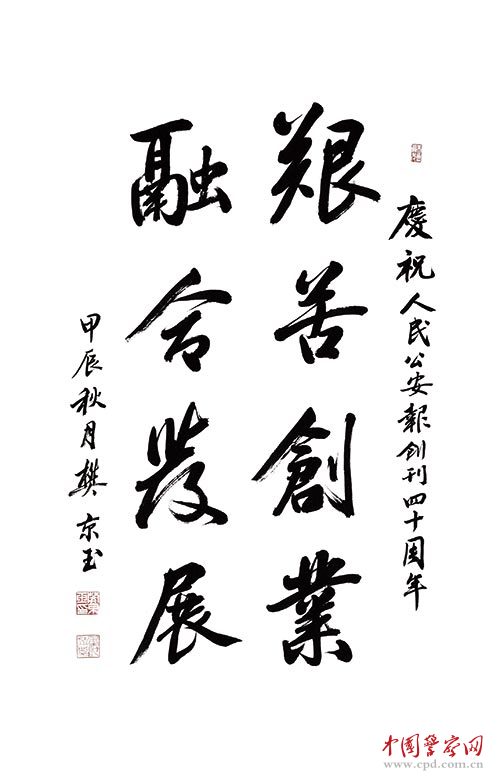 慶祝人民公安報創刊四十周年
艱苦創業
融合發展
甲辰秋月樊京玉
中国警察网
www.cpd.com.cn